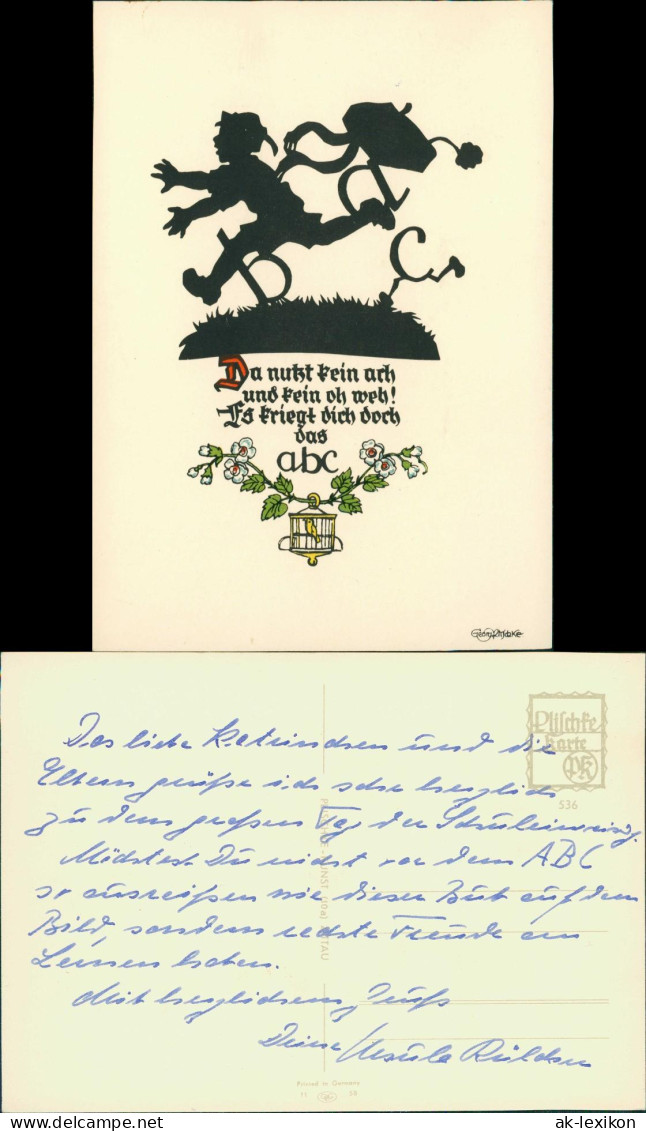 a
b
c
Da nutzt kein ach
und kein oh weh!
Es kriegt dich doch
das
abc
Georg Plischke
Plischke
Karte
PK
536
Das liebe Katrinchen und die
Eltern grüße ich sehr herzlich
zu dem großen Tag der Schuleinweisg.
Möchtest Du nicht vor dem ABC
so ausreißen wie dieser Bub auf dem
Bild, sondern rechte Freude am
Lernen haben.
Mit herzlichem Gruß
Deine Ursula
Printed in Germany
11 59
ak-lexikon